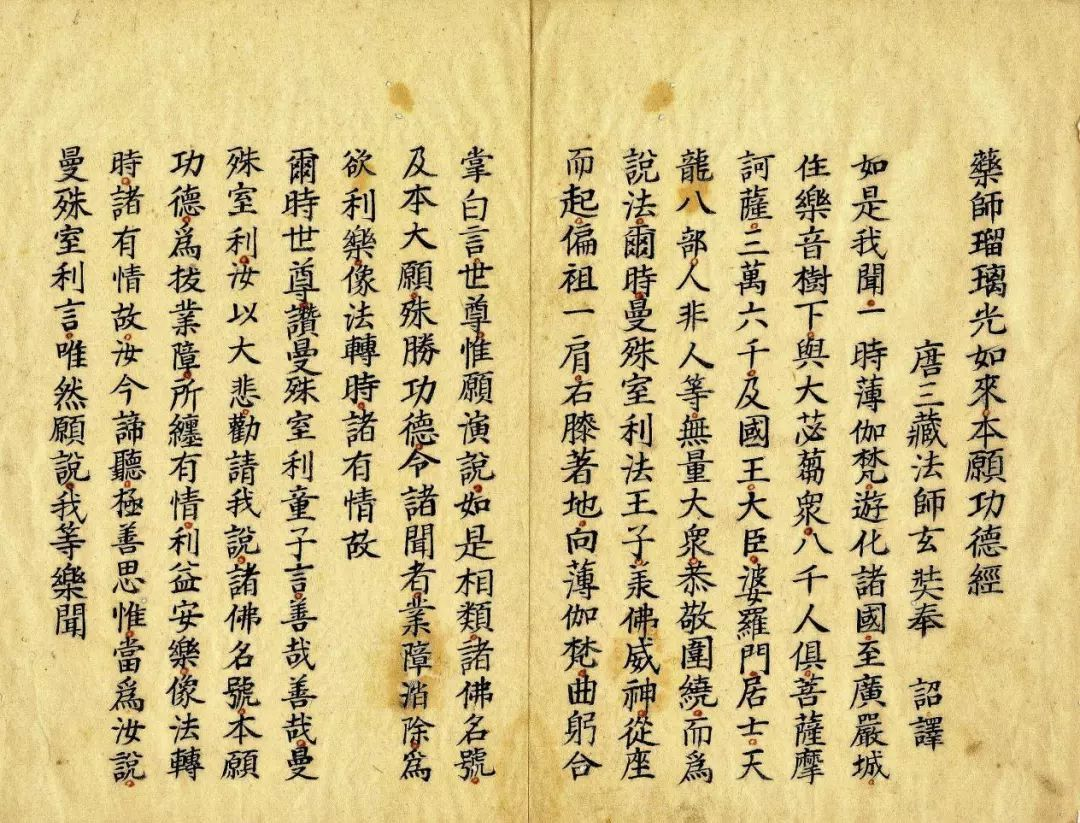 藥師瑠璃光如來本願功德經
唐三藏法師玄奘奉　詔譯
如是我聞一時薄伽梵遊化諸國至廣嚴城
住樂音樹下與大苾蒭衆八千人俱菩薩摩
訶薩三萬六千及國王大臣婆羅門居士天
龍八部人非人等無量大衆恭敬圍繞而爲
說法爾時曼殊室利法王子承佛威神從座
而起偏袒一肩右膝著地向薄伽梵曲躬合
掌白言世尊惟願演說如是相類諸佛名號
及本大願殊勝功德令諸聞者業障消除爲
欲利樂像法轉時諸有情故
爾時世尊讚曼殊室利童子言善哉善哉曼
殊室利汝以大悲勸請我說諸佛名號本願
功德爲拔業障所纏有情利益安樂像法轉
時諸有情故汝今諦聽極善思惟當爲汝說
曼殊室利言唯然願說我等樂聞